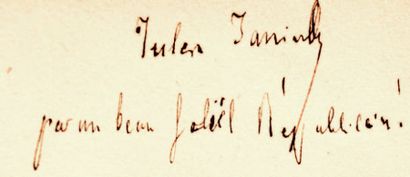 Jules
par un beau soleil Républicain!